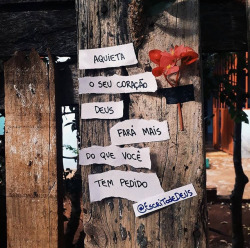 AQUIETA
O SEU CORAÇÃO
DEUS
FARÁ MAIS
DO QUE VOCÊ
TEM PEDIDO
@ESCRITOSEDEUS